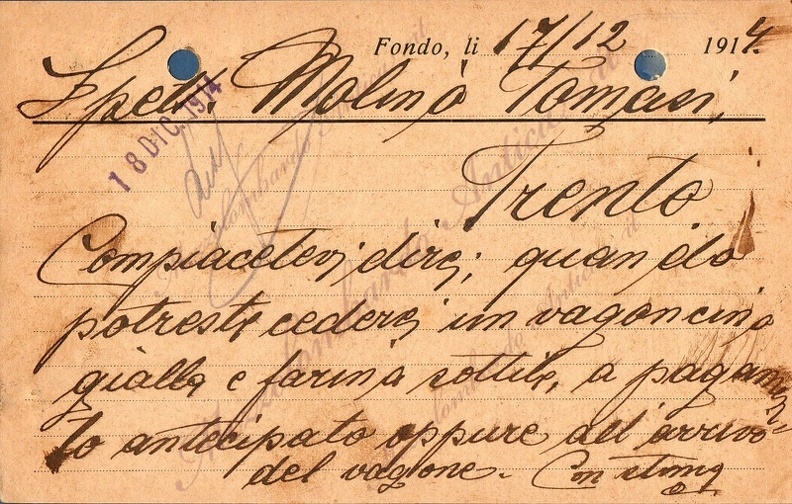 Fondo, li 17/12 1914.
Spett. Molino Tomasi,
18 DIC. 1914
Trento
Compiacetevi dirci, quando
potreste cederci un vagoncino
gialla e farina sottile, a pagamen-
to antecipato oppure all'arrivo
del vagone. Con stima